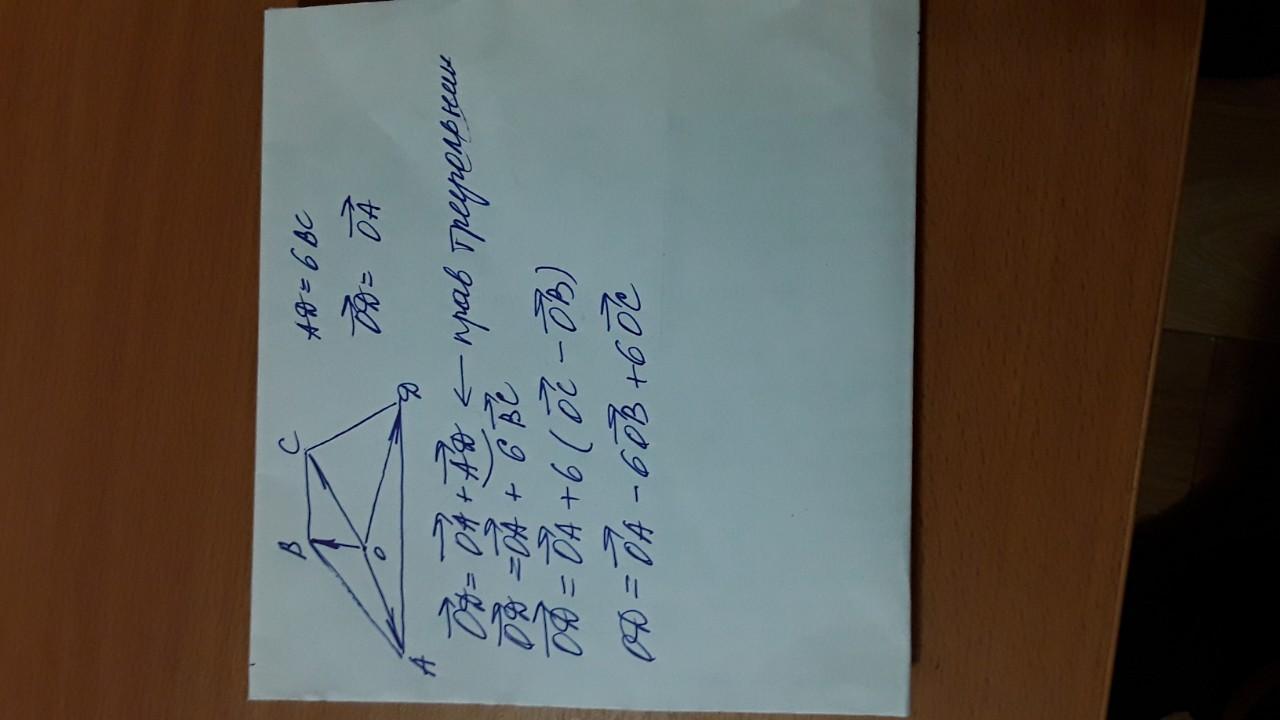 B
C
O
A
D
AD = 6 BC
→OD = →OA
→OD = →OA + →AD ← прав треугольник
→OD = →OA + 6 →BC
→OD = →OA + 6 ( →OC − →OB )
OD = →OA − 6→OB + 6→OC